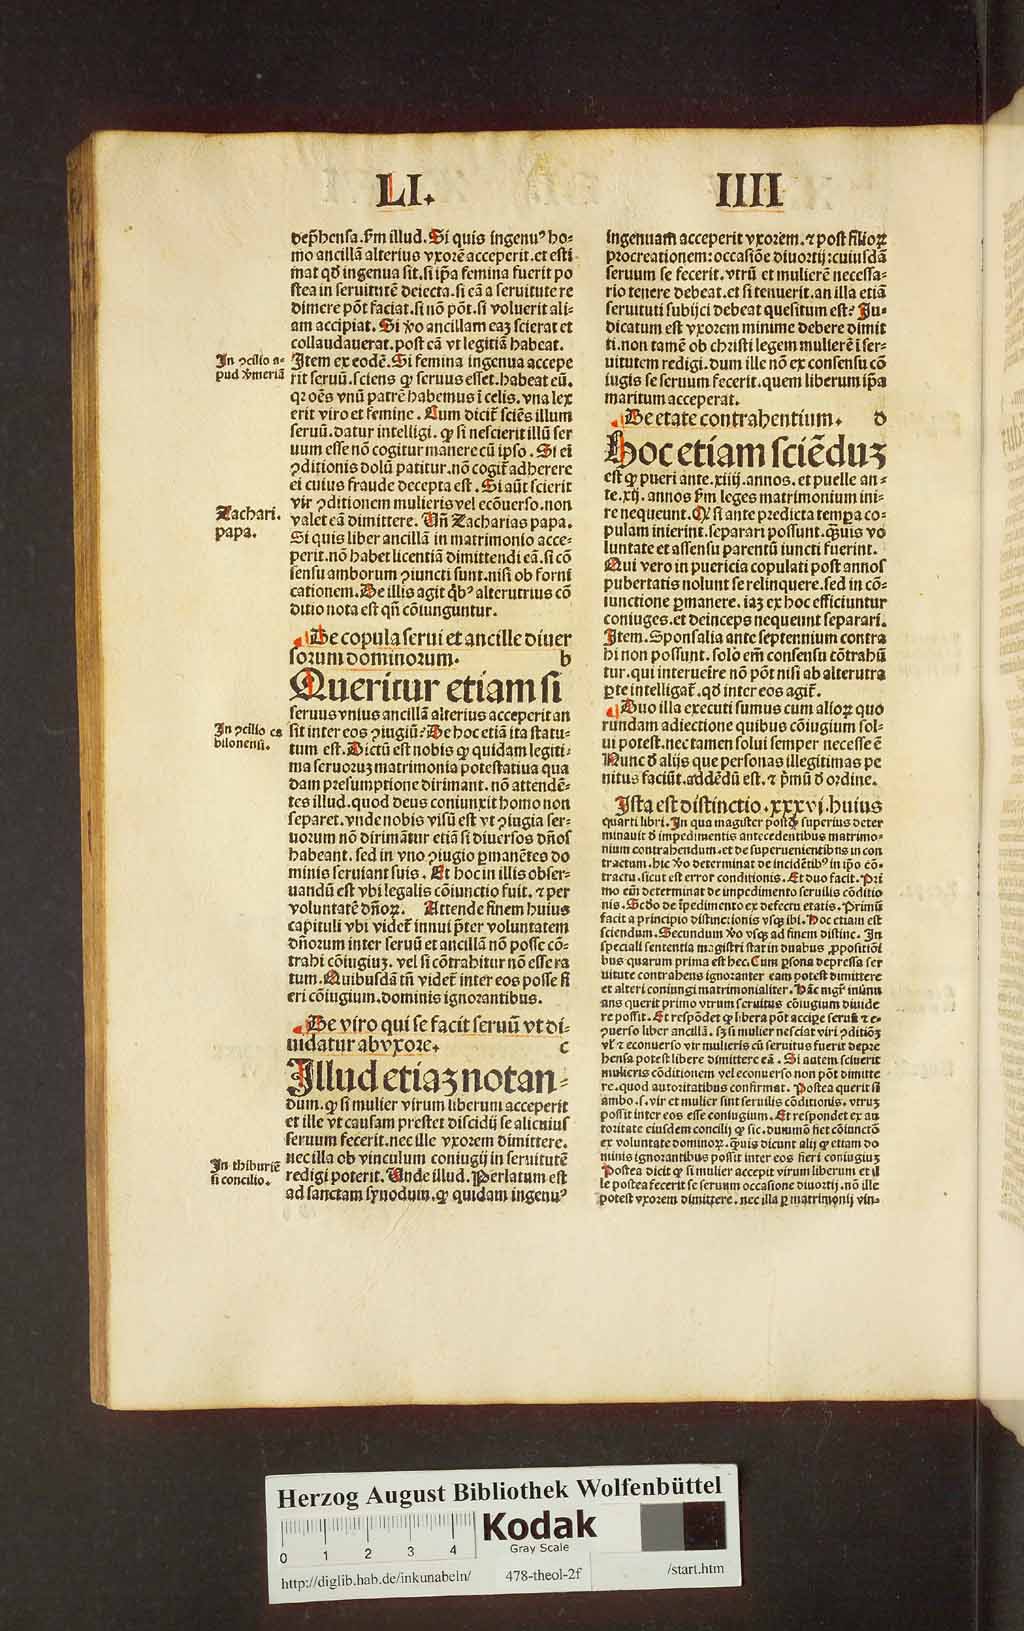 LI.
IIII
dep̄hensa.s̄m illud. Si quis ingenuꝰ ho⸗
mo ancillā alterius vxorē acceperit.et esti
mat qđ ingenua sit.si ip̄a femina fuerit po
stea in seruitutē deiecta.si eā a seruitute re
dimere pōt faciat.si nō pōt.si voluerit ali⸗
am accipiat. Si v̄o ancillam eaꝫ scierat et
collaudauerat.post eā vt legitiā habeat.
In ꝯcilio a⸗
pud v̄meriā
Item ex eodē. Si femina ingenua accepe
rit seruū.sciens ꝙ seruus esset.habeat eū.
qꝛ oēs vnū patrē habemus ī celis.vna lex
erit viro et femine. Cum dicit̄ sciēs illum
seruū.datur intelligi.ꝙ si nescierit illū ser
uum esse nō cogitur manere cū ipso. Si ei
ꝯditionis dolū patitur.nō cogit̄ adherere
ei cuius fraude decepta est. Si aūt scierit
vir ꝯditionem mulieris vel ecōuerso.non
Zachari.
papa.
valet eā dimittere. Vn̄ Zacharias papa.
Si quis liber ancillā in matrimonio acce⸗
perit.nō habet licentiā dimittendi eā.si cō
sensu amborum ꝯiuncti sunt.nisi ob forni
cationem. De illis agit q̄bꝰ alterutrius cō
ditio nota est qn̄ cōiunguntur.
De copula serui et ancille diuer
sorum dominorum. b
Queritur etiam si
seruus vnius ancillā alterius acceperit an
In ꝯcilio ca
bilonensi.
sit inter eos ꝯiugiū? De hoc etiā ita statu⸗
tum est. Dictū est nobis ꝙ quidam legiti⸗
ma seruoruꝫ matrimonia potestatiua qua
dam presumptione dirimant.nō attendē⸗
tes illud.quod deus coniunxit homo non
separet.vnde nobis visū est vt ꝯiugia ser⸗
uorum nō dirimātur etiā si diuersos dn̄os
habeant.sed in vno ꝯiugio ꝑmanētes do
minis seruiant suis. Et hoc in illis obser⸗
uandū est vbi legalis cōiunctio fuit.⁊ per
voluntatē dn̄oꝝ. Attende finem huius
capituli vbi videt̄ innui p̄ter voluntatem
dn̄orum inter seruū et ancillā nō posse cō⸗
trahi cōiugiuꝫ.vel si cōtrahitur nō esse ra
tum. Quibusdā tn̄ videt̄ inter eos posse fi
eri cōiugium.dominis ignorantibus.
De viro qui se facit seruū vt di⸗
uidatur ab vxore. c
Illud etiaꝫ notan⸗
dum.ꝙ si mulier virum liberum acceperit
et ille vt causam prestet discidij se alicuius
seruum fecerit.nec ille vxorem dimittere.
nec illa ob vinculum coniugij in seruitutē
In thiburiē
si concilio.
redigi poterit. Unde illud. Perlatum est
ad sanctam synodum.ꝙ quidam ingenuꝰ
ingenuam acceperit vxorem.⁊ post filioꝝ
procreationem:occasiōe diuortij:cuiusdā
seruum se fecerit.vtrū et mulierē necessa⸗
rio tenere debeat.et si tenuerit.an illa etiā
seruituti subijci debeat quesitum est? Iu⸗
dicatum est vxorem minime debere dimit
ti.non tamē ob christi legem mulierē ī ser⸗
uitutem redigi.dum ille nō ex consensu cō
iugis se seruum fecerit.quem liberum ip̄a
maritum acceperat.
De etate contrahentium. d
Hoc etiam sciēduꝫ
est ꝙ pueri ante.xiiij.annos.et puelle an⸗
te.xij.annos s̄m leges matrimonium ini⸗
re nequeunt. Qꝫ si ante predicta tempꝑa co⸗
pulam inierint.separari possunt.qͣuis vo
luntate et assensu parentū iuncti fuerint.
Qui vero in puericia copulati post annos
pubertatis nolunt se relinquere.sed in cō⸗
iunctione ꝑmanere.iaꝫ ex hoc efficiuntur
coniuges.et deinceps nequeunt separari.
Item. Sponsalia ante septennium contra
hi non possunt.solo em̄ consensu cōtrahū
tur.qui interueire nō pōt nisi ab alterutra
ꝑte intelligat̄.qđ inter eos agit̄.
Duo illa executi sumus cum alioꝝ quo
rundam adiectione quibus cōiugium sol⸗
ui potest.nec tamen solui semper necesse ē
Nunc đ alijs que personas illegitimas pe
nitus faciūt.addēdū est.⁊ p̄mū đ ordine.
Ista est distinctio.xxxvj.huius
quarti libri. In qua magister postqͣ superius deter
minauit đ impedimentis antecedentibus matrimo⸗
nium contrahendum.et de superuenientibus in con
tractum.hic v̄o determinat de incidētibꝰ in ip̄o cō⸗
tractu.sicut est error conditionis. Et duo facit. Pri
mo em̄ determinat de impedimento seruilis cōditio
nis. Scđo de īpedimento ex defectu etatis. Primū
facit a principio distinctionis vsqꝫ ibi. Hoc etiam est
sciendum. Secundum v̄o vsqꝫ ad finem distinc. In
speciali sententia magistri stat in duabus ꝓpositiōi
bus quarum prima est hec. Cum ꝑsona depressa ser
uitute contrahens ignoranter eam potest dimittere
et alteri coniungi matrimonialiter. Hāc mgr̄ inūnu
ans querit primo vtrum seruitus cōiugium diuide
re possit. Et respōdet ꝙ libera pōt accipe seruū ⁊ e⸗
ꝯuerso liber ancillā.sꝫ si mulier nesciat viri ꝯditiōꝫ
vl̄ ⁊ econuerso vir mulieris cū seruitus fuerit depre
hensa potest libere dimittere eā. Si autem sciuerit
mulieris cōditionem vel econuerso non pōt dimitte
re.quod autoritatibus confirmat. Postea querit si
ambo.s.vir et mulier sint seruilis cōditionis.vtruꝫ
possit inter eos esse coniugium. Et respondet ex au
toritate eiusdem concilij ꝙ sic.dummō fiet cōiunctō
ex voluntate dominoꝝ.qͣuis dicunt alij ꝙ etiam do
minis ignorantibus possit inter eos fieri coniugiuꝫ
Postea dicit ꝙ si mulier accepit virum liberum et il
le postea fecerit se seruum occasione diuortij.nō ille
potest vxorem dimittere.nec illa ꝑ matrimonij vin⸗
Herzog August Bibliothek Wolfenbüttel
0 1 2 3 4
Kodak
Gray Scale
http://diglib.hab.de/inkunabeln/
478-theol-2f
/start.htm